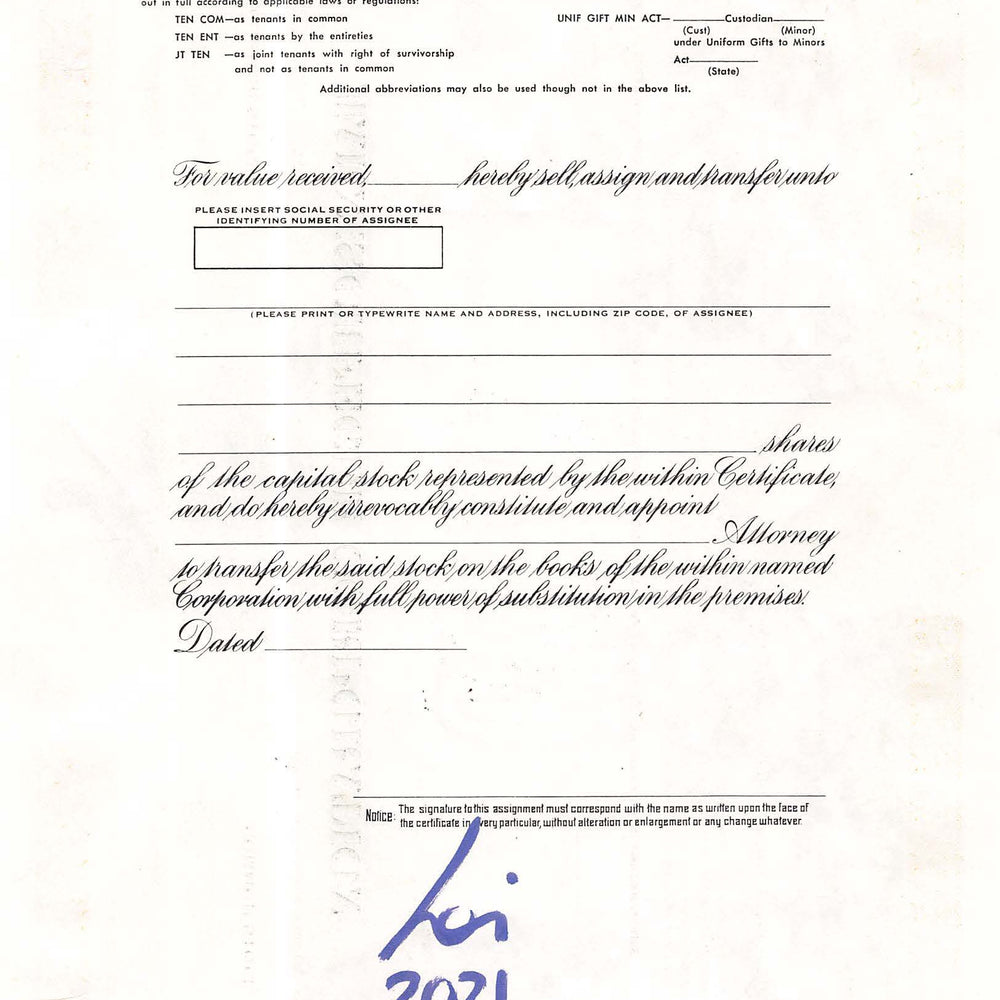 out in full according to applicable laws or regulations:
TEN COM—as tenants in common
TEN ENT —as tenants by the entireties
JT TEN —as joint tenants with right of survivorship
and not as tenants in common
UNIF GIFT MIN ACT—________Custodian________
(Cust) (Minor)
under Uniform Gifts to Minors
Act________
(State)
Additional abbreviations may also be used though not in the above list.
For value received, ________ hereby sell, assign and transfer unto
PLEASE INSERT SOCIAL SECURITY OR OTHER
IDENTIFYING NUMBER OF ASSIGNEE
(PLEASE PRINT OR TYPEWRITE NAME AND ADDRESS, INCLUDING ZIP CODE, OF ASSIGNEE)
________ shares
of the capital stock represented by the within Certificate,
and do hereby irrevocably constitute and appoint
________ Attorney
to transfer the said stock on the books of the within named
Corporation with full power of substitution in the premises.
Dated ________
Notice: The signature to this assignment must correspond with the name as written upon the face of
the certificate in every particular, without alteration or enlargement or any change whatever.
2021